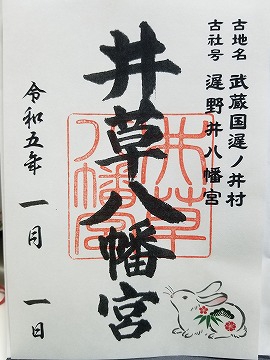 古地名 武蔵国遅ノ井村
古社号 遅野井八幡宮
井草八幡宮
井草八幡宮
令和五年 一月 一日